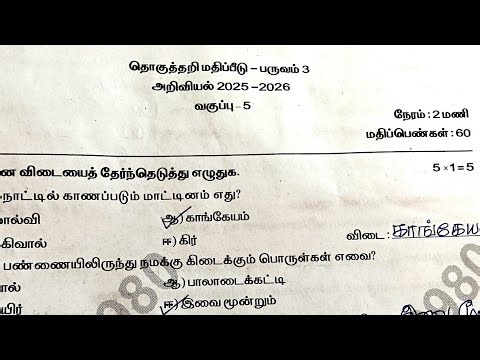 தொகுத்தறி மதிப்பீடு – பருவம் 3
அறிவியல் 2025 – 2026
வகுப்பு – 5
நேரம் : 2 மணி
மதிப்பெண்கள் : 60
விடையைத் தேர்ந்தெடுத்து எழுதுக. 5 × 1 = 5
நாட்டில் காணப்படும் மாட்டினம் எது?
ஆ) காங்கேயம்
ஈ) கிர் விடை :
பண்ணையிலிருந்து நமக்கு கிடைக்கும் பொருள்கள் எவை?
ஆ) பாலாடைக்கட்டி
ஈ) இவை மூன்றும்